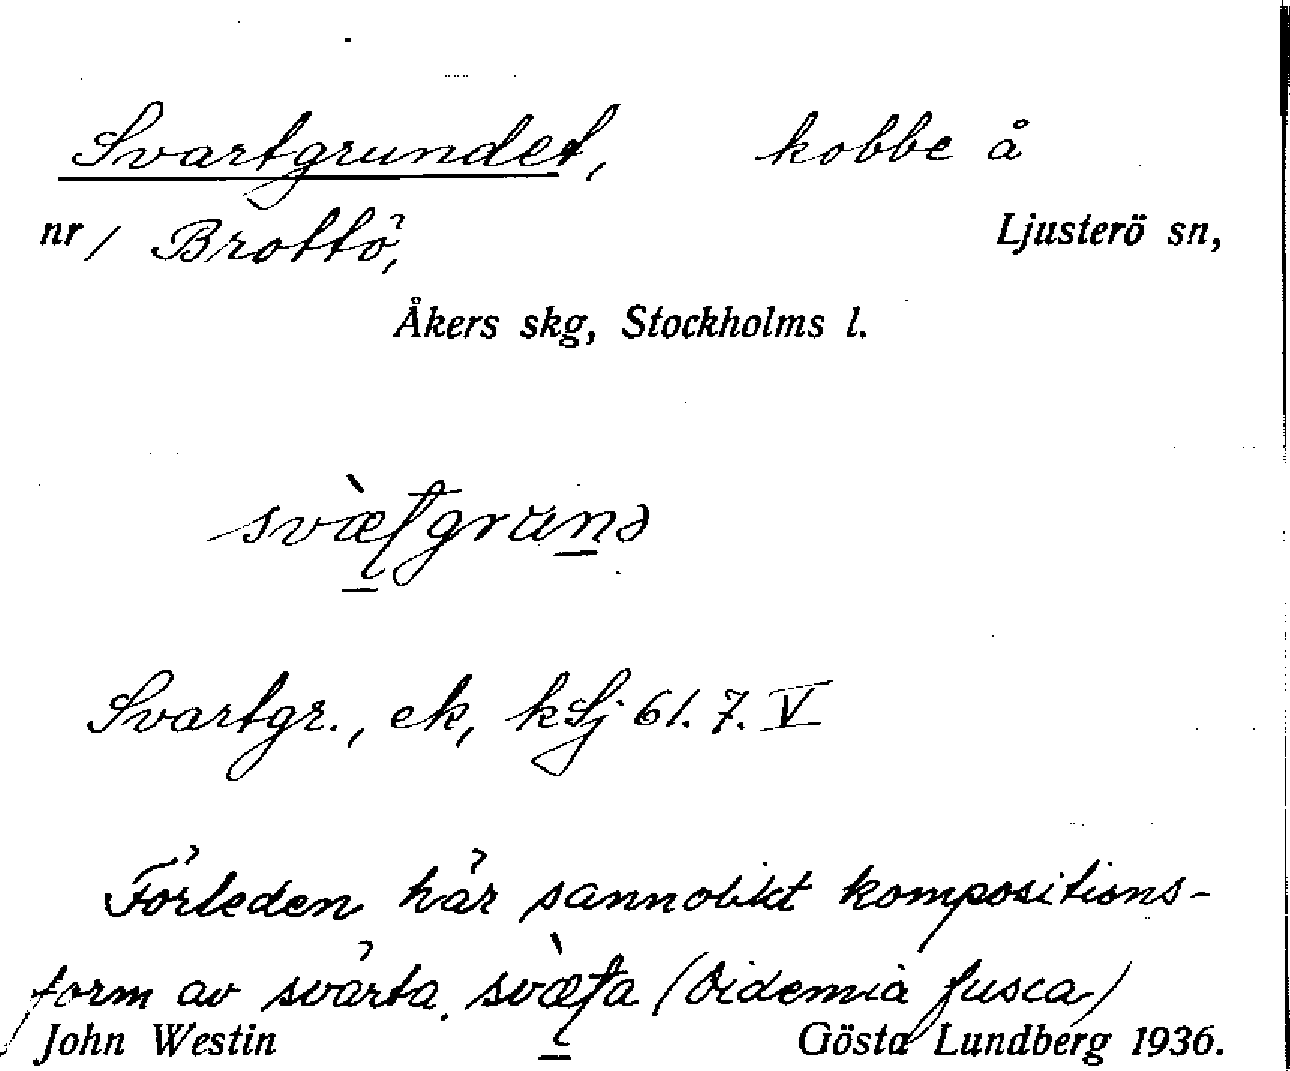 Svartgrundet, kobbe å
nr / Brottö, Ljusterö sn,
Åkers skg, Stockholms l.
Svartgr., ek, kLj 61. 7. V
Förleden här sannolikt kompositions-
form av svärta, (Oidemia fusca)
John Westin Gösta Lundberg 1936.